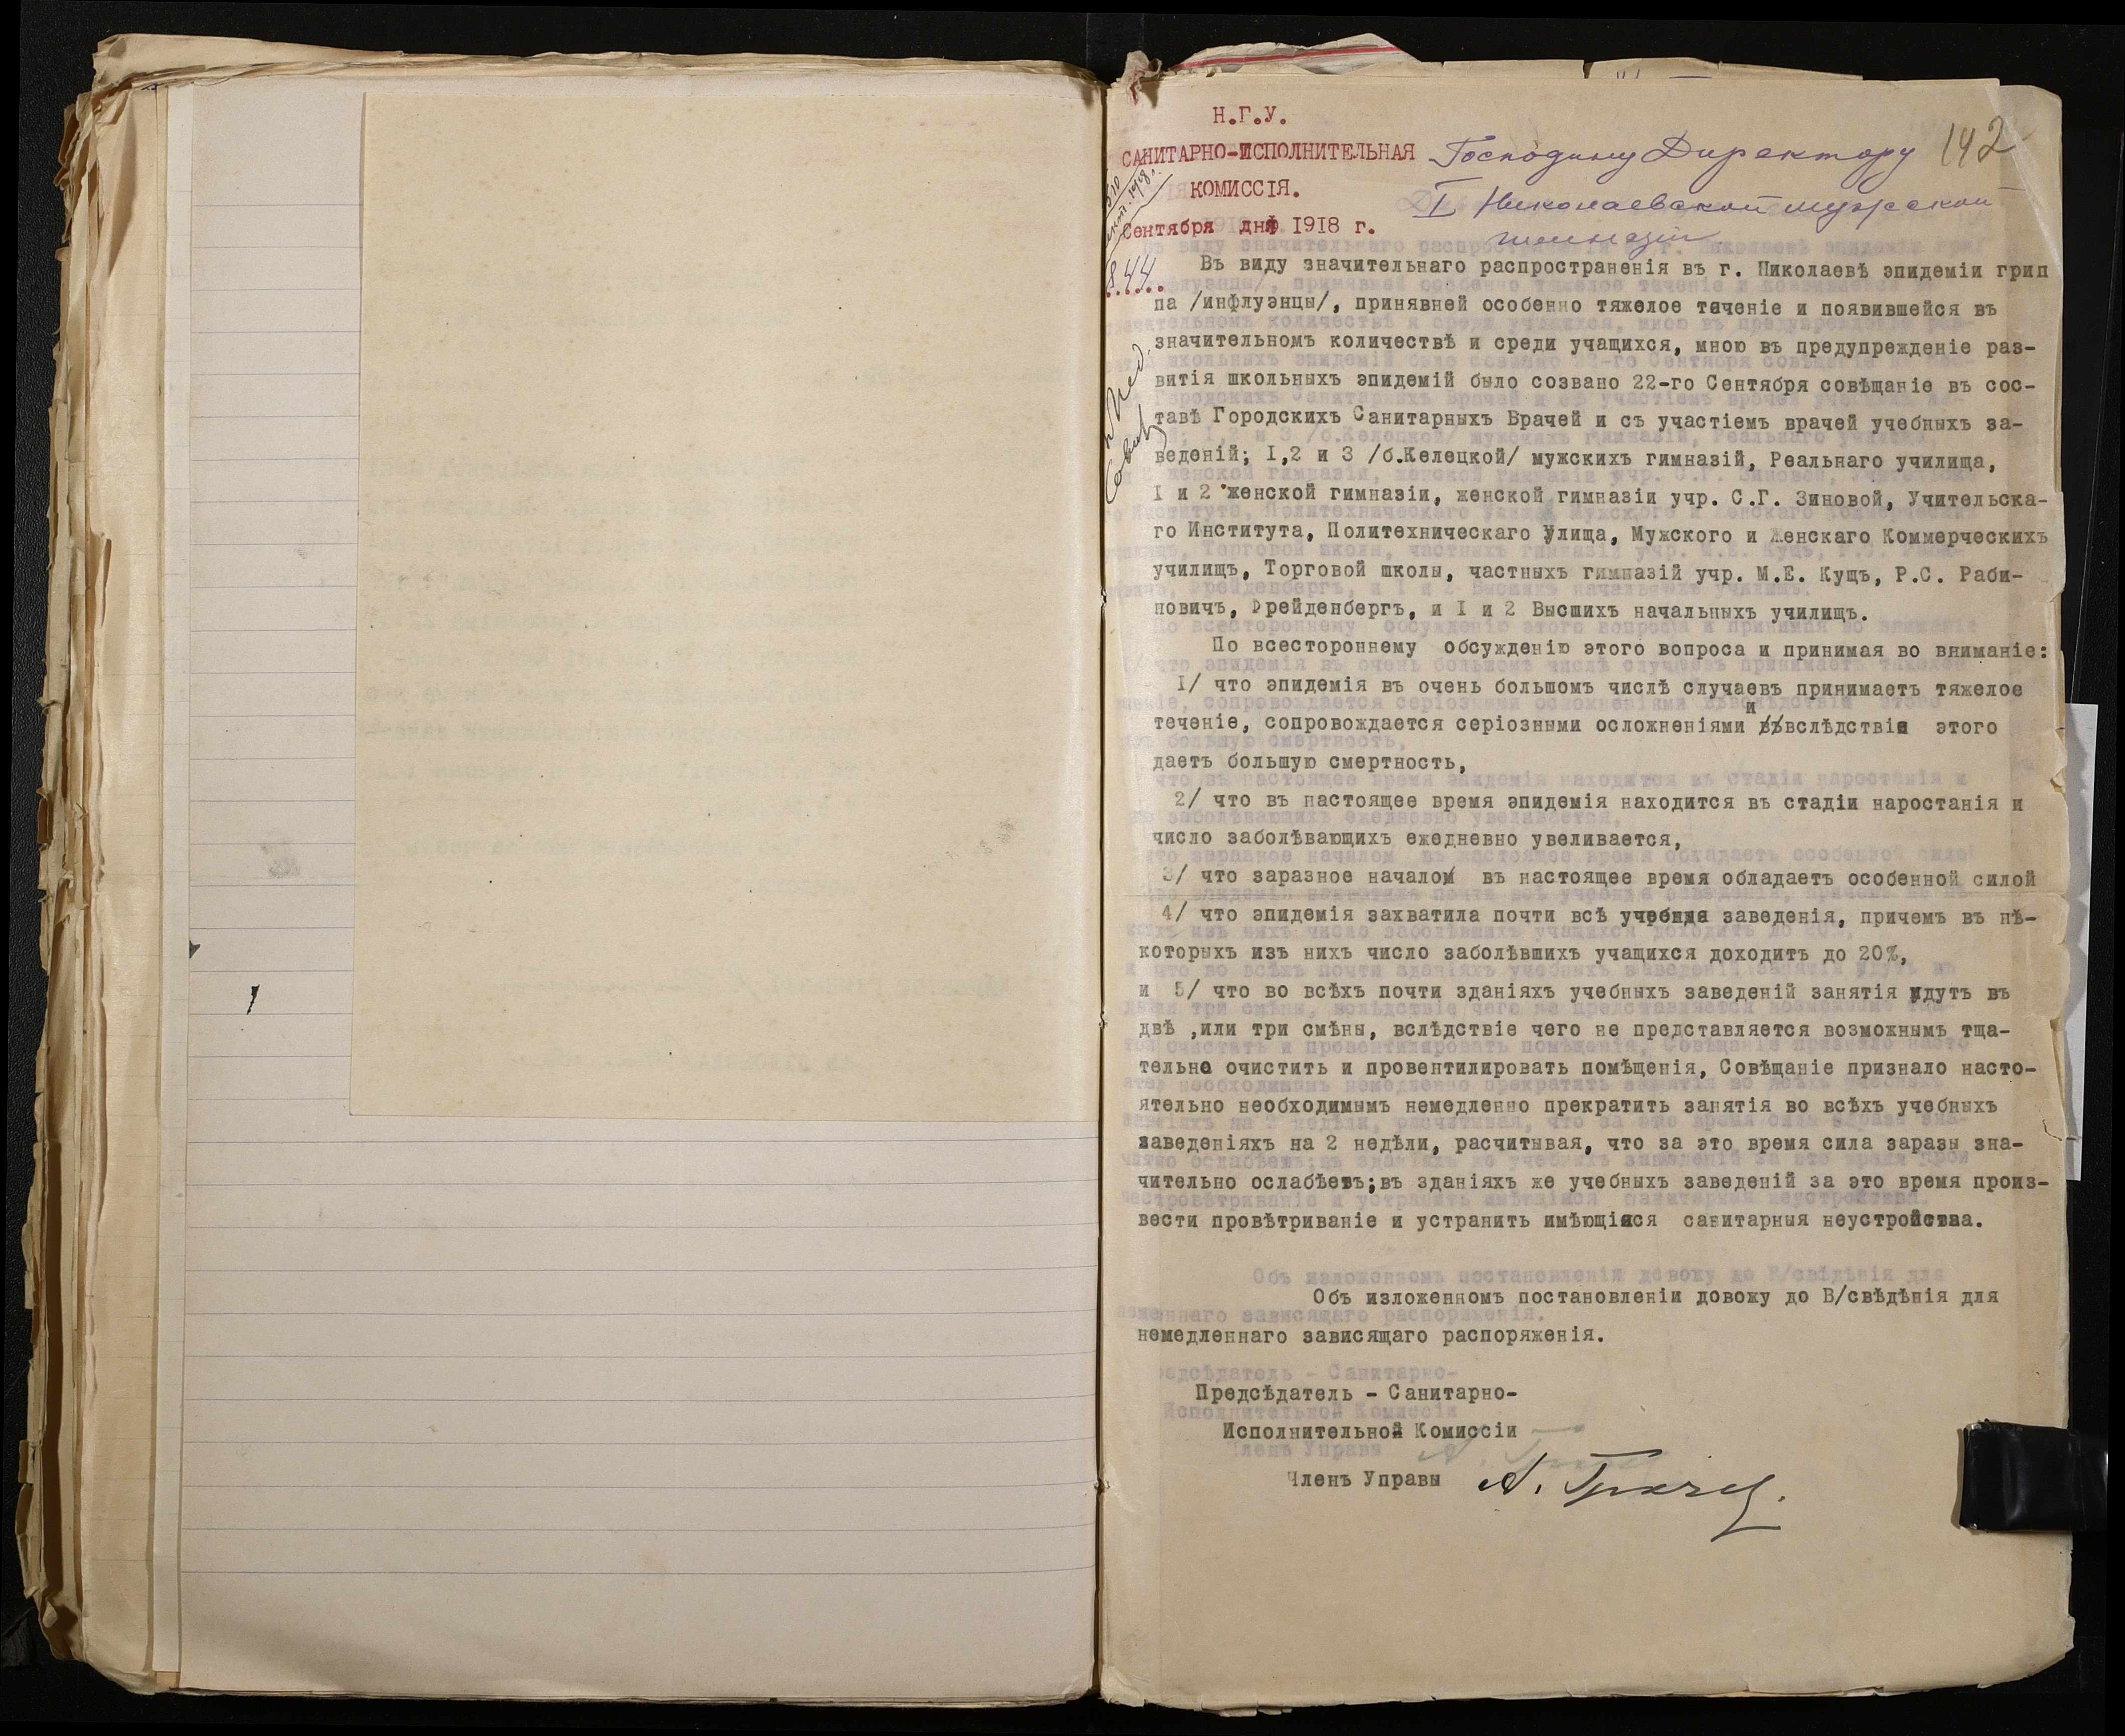 Н.Г.У.
САНИТАРНО-ИСПОЛНИТЕЛЬНАЯ
КОМИССІЯ.
Сентября дня 1918 г.
844
Господину Директору
I Николаевской мужской
гимназіи
142
Въ виду значительнаго распространенія въ г. Николаевѣ эпидеміи грип
па /инфлуэнцы/, принявшей особенно тяжелое теченіе и появившейся въ
значительномъ количествѣ и среди учащихся, мною въ предупрежденіе раз-
витія школьныхъ эпидемій было созвано 22-го Сентября совѣщаніе въ сос-
тавѣ Городскихъ Санитарныхъ Врачей и съ участіемъ врачей учебныхъ за-
веденій; I,2 и 3 /б.Келецкой/ мужскихъ гимназій, Реальнаго училища,
I и 2 женской гимназіи, женской гимназіи учр. С.Г. Зиновой, Учительска-
го Института, Политехническаго Улища, Мужского и Женскаго Коммерческихъ
училищъ, Торговой школы, частныхъ гимназій учр. М.Е. Кущъ, Р.С. Раби-
новичъ, Фрейденбергъ, и I и 2 Высшихъ начальныхъ училищъ.
По всестороннему обсужденію этого вопроса и принимая во вниманіе:
I/ что эпидемія въ очень большомъ числѣ случаевъ принимаетъ тяжелое
теченіе, сопровождается серіозными осложненіями и вслѣдствіе этого
даетъ большую смертность,
2/ что въ настоящее время эпидемія находится въ стадіи наростанія и
число заболѣвающихъ ежедневно увеличивается,
3/ что заразное начало въ настоящее время обладаетъ особенной силой
4/ что эпидемія захватила почти всѣ учебныя заведенія, причемъ въ нѣ-
которыхъ изъ нихъ число заболѣвшихъ учащихся доходитъ до 20%,
и 5/ что во всѣхъ почти зданіяхъ учебныхъ заведеній занятія идутъ въ
двѣ ,или три смѣны, вслѣдствіе чего не представляется возможнымъ тща-
тельно очистить и провентилировать помѣщенія, Совѣщаніе признало насто-
ятельно необходимымъ немедленно прекратить занятія во всѣхъ учебныхъ
заведеніяхъ на 2 недѣли, расчитывая, что за это время сила заразы зна-
чительно ослабѣетъ;въ зданіяхъ же учебныхъ заведеній за это время произ-
вести провѣтриваніе и устранить имѣющіяся санитарныя неустройства.
Объ изложенномъ постановленіи довожу до В/свѣдѣнія для
немедленнаго зависящаго распоряженія.
Предсѣдатель - Санитарно-
Исполнительной Комиссіи
Членъ Управы